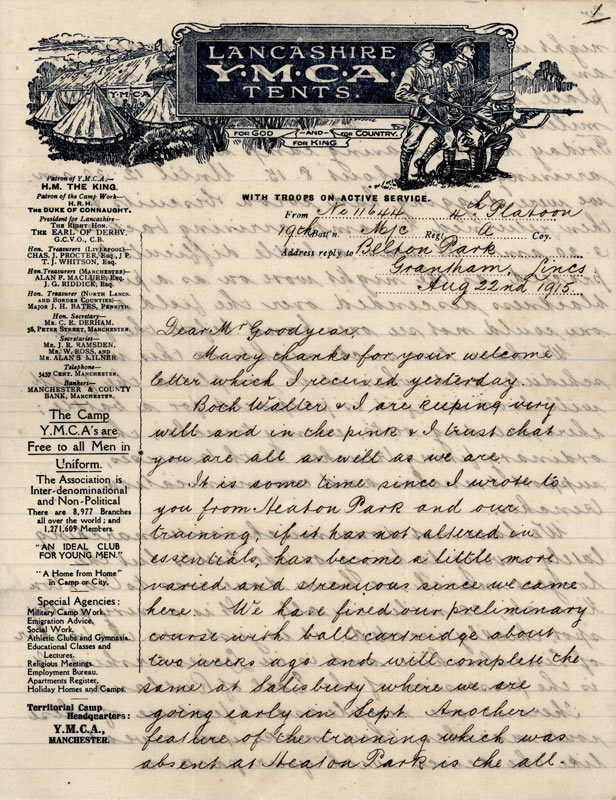 1
LANCASHIRE
Y.M.C.A.
TENTS.
Y·M·C·A
FOR GOD —AND— FOR COUNTRY.
FOR KING
Patron of Y.M.C.A.—
H.M. THE KING.
Patron of the Camp Work—
H.R.H.
THE DUKE OF CONNAUGHT.
President for Lancashire—
THE RIGHT HON.
THE EARL OF DERBY,
G.C.V.O., C.B.
Hon. Treasurers (Liverpool)—
CHAS. J. PROCTER, Esq., J P.
T. J. WHITSON, Esq.
Hon. Treasurers (Manchester)—
ALAN F. MACLURE, Esq.
J. G. RIDDICK, Esq.
Hon. Treasurer (North Lancs.
and Border Counties)—
MAJOR J. H. BATES, PENRITH.
Hon. Secretary—
MR. C. E. DERHAM,
56, PETER STREET, MANCHESTER.
Secretaries—
MR. J. R. RAMSDEN,
MR. W. ROSS, AND
MR. ALAN S. MILNER.
Telephone—
5457 CENT. MANCHESTER.
Bankers—
MANCHESTER & COUNTY
BANK, MANCHESTER.
The Camp
Y.M.C.A's are
Free to all Men in
Uniform.
The Association is
Inter-denominational
and Non-Political
There are 8,977 Branches
all over the world; and
1,271,609 Members.
"AN IDEAL CLUB
FOR YOUNG MEN."
"A Home from Home"
in Camp or City.
Special Agencies:
Military Camp Work.
Emigration Advice.
Social Work.
Athletic Clubs and Gymnasia.
Educational Classes and
Lectures.
Religious Meetings.
Employment Bureau.
Apartments Register.
Holiday Homes and Camps.
Territorial Camp
Headquarters:
Y.M.C.A.,
MANCHESTER.
WITH TROOPS ON ACTIVE SERVICE.
From No 11644 4th Platoon
19th Batt'n. M/c Regt. A Coy.
Address reply to Belton Park
Grantham, Lincs
Aug 22nd 1915.
Dear Mr Goodyear,
Many thanks for your welcome
letter which I received yesterday.
Both Walter & I are keeping very
well and in the pink & I trust that
you are all as well as we are.
It is some time since I wrote to
you from Heaton Park and our
training, if it has not altered in
essentials, has become a little more
varied and strenuous since we came
here. We have fired our preliminary
course with ball cartridge about
two weeks ago and will complete the
same at Salisbury where we are
going early in Sept. Another
feature of the training which was
absent at Heaton Park is the all-